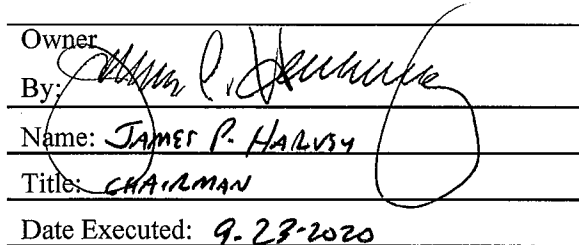 Owner
By:
Name: JAMES P. HARVEY
Title: CHAIRMAN
Date Executed: 9-23-2020